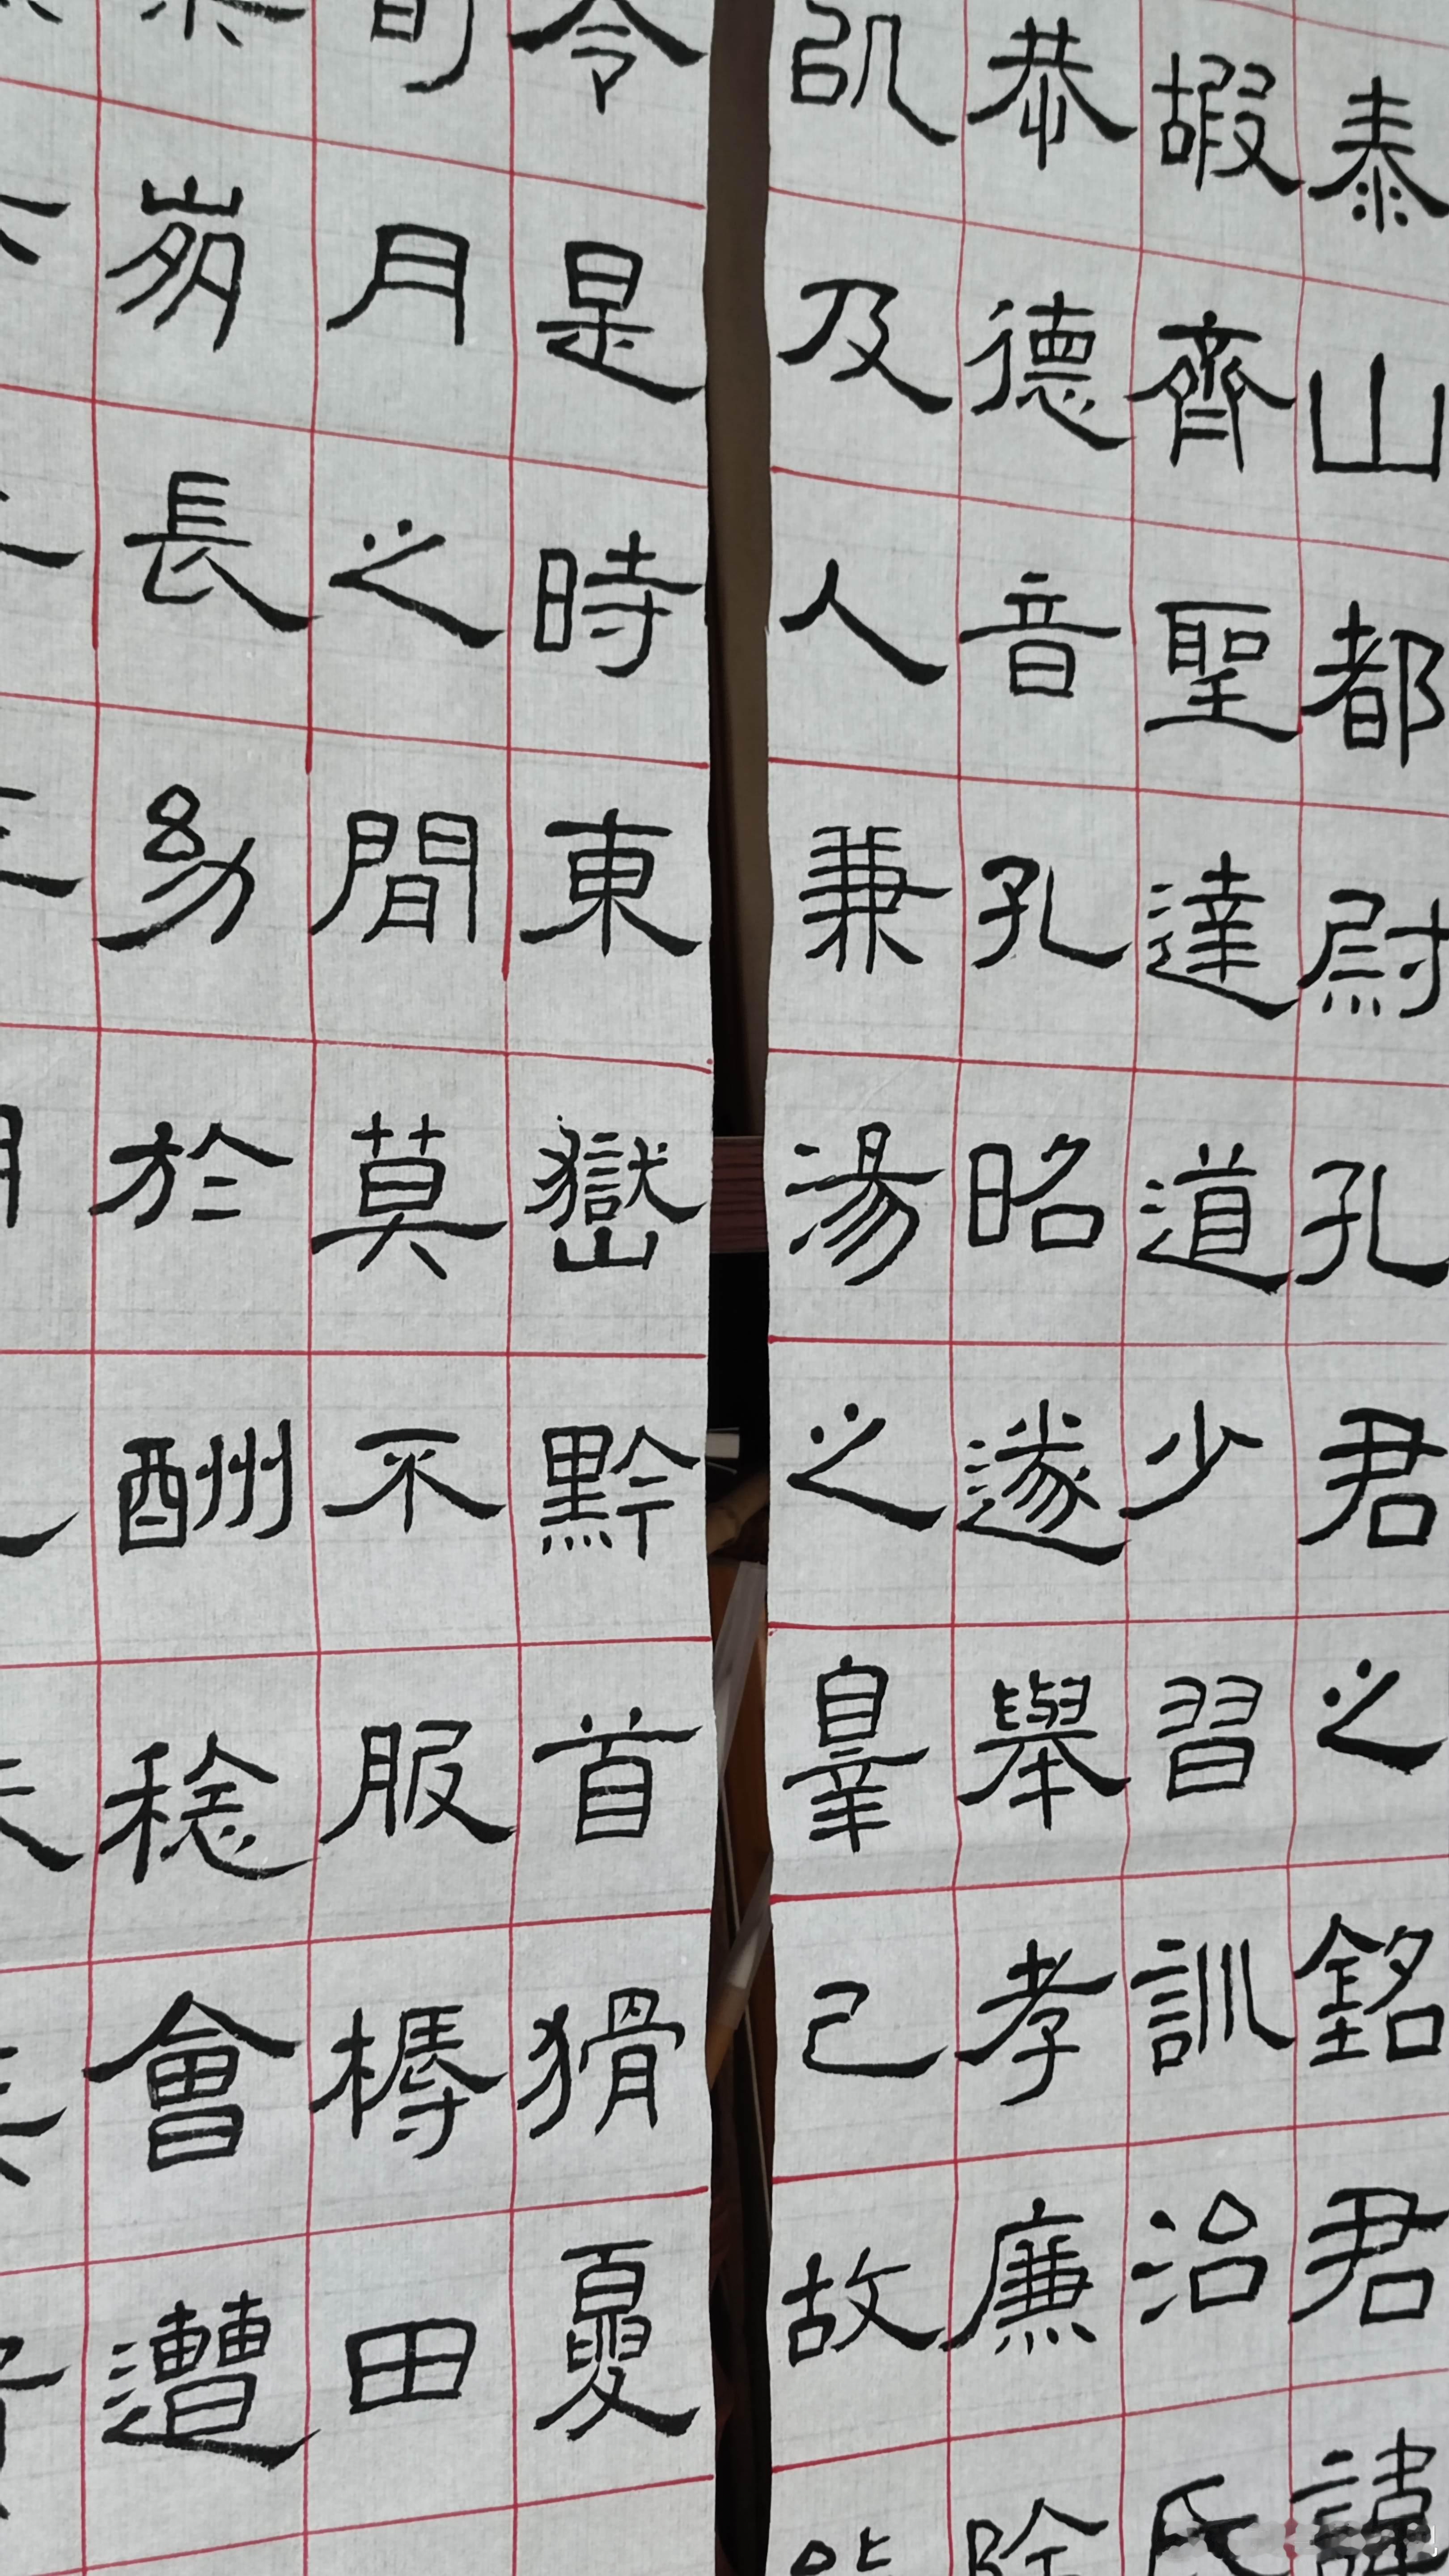 泰山都尉孔君之銘君諱
嘏齊聖達道少習訓治氏
恭德音孔昭遂舉孝廉除
以及人兼湯之辠己故
令是時東嶽黔首猾夏
旬月之間莫不服耨田
崩長幼於酬稔會遭